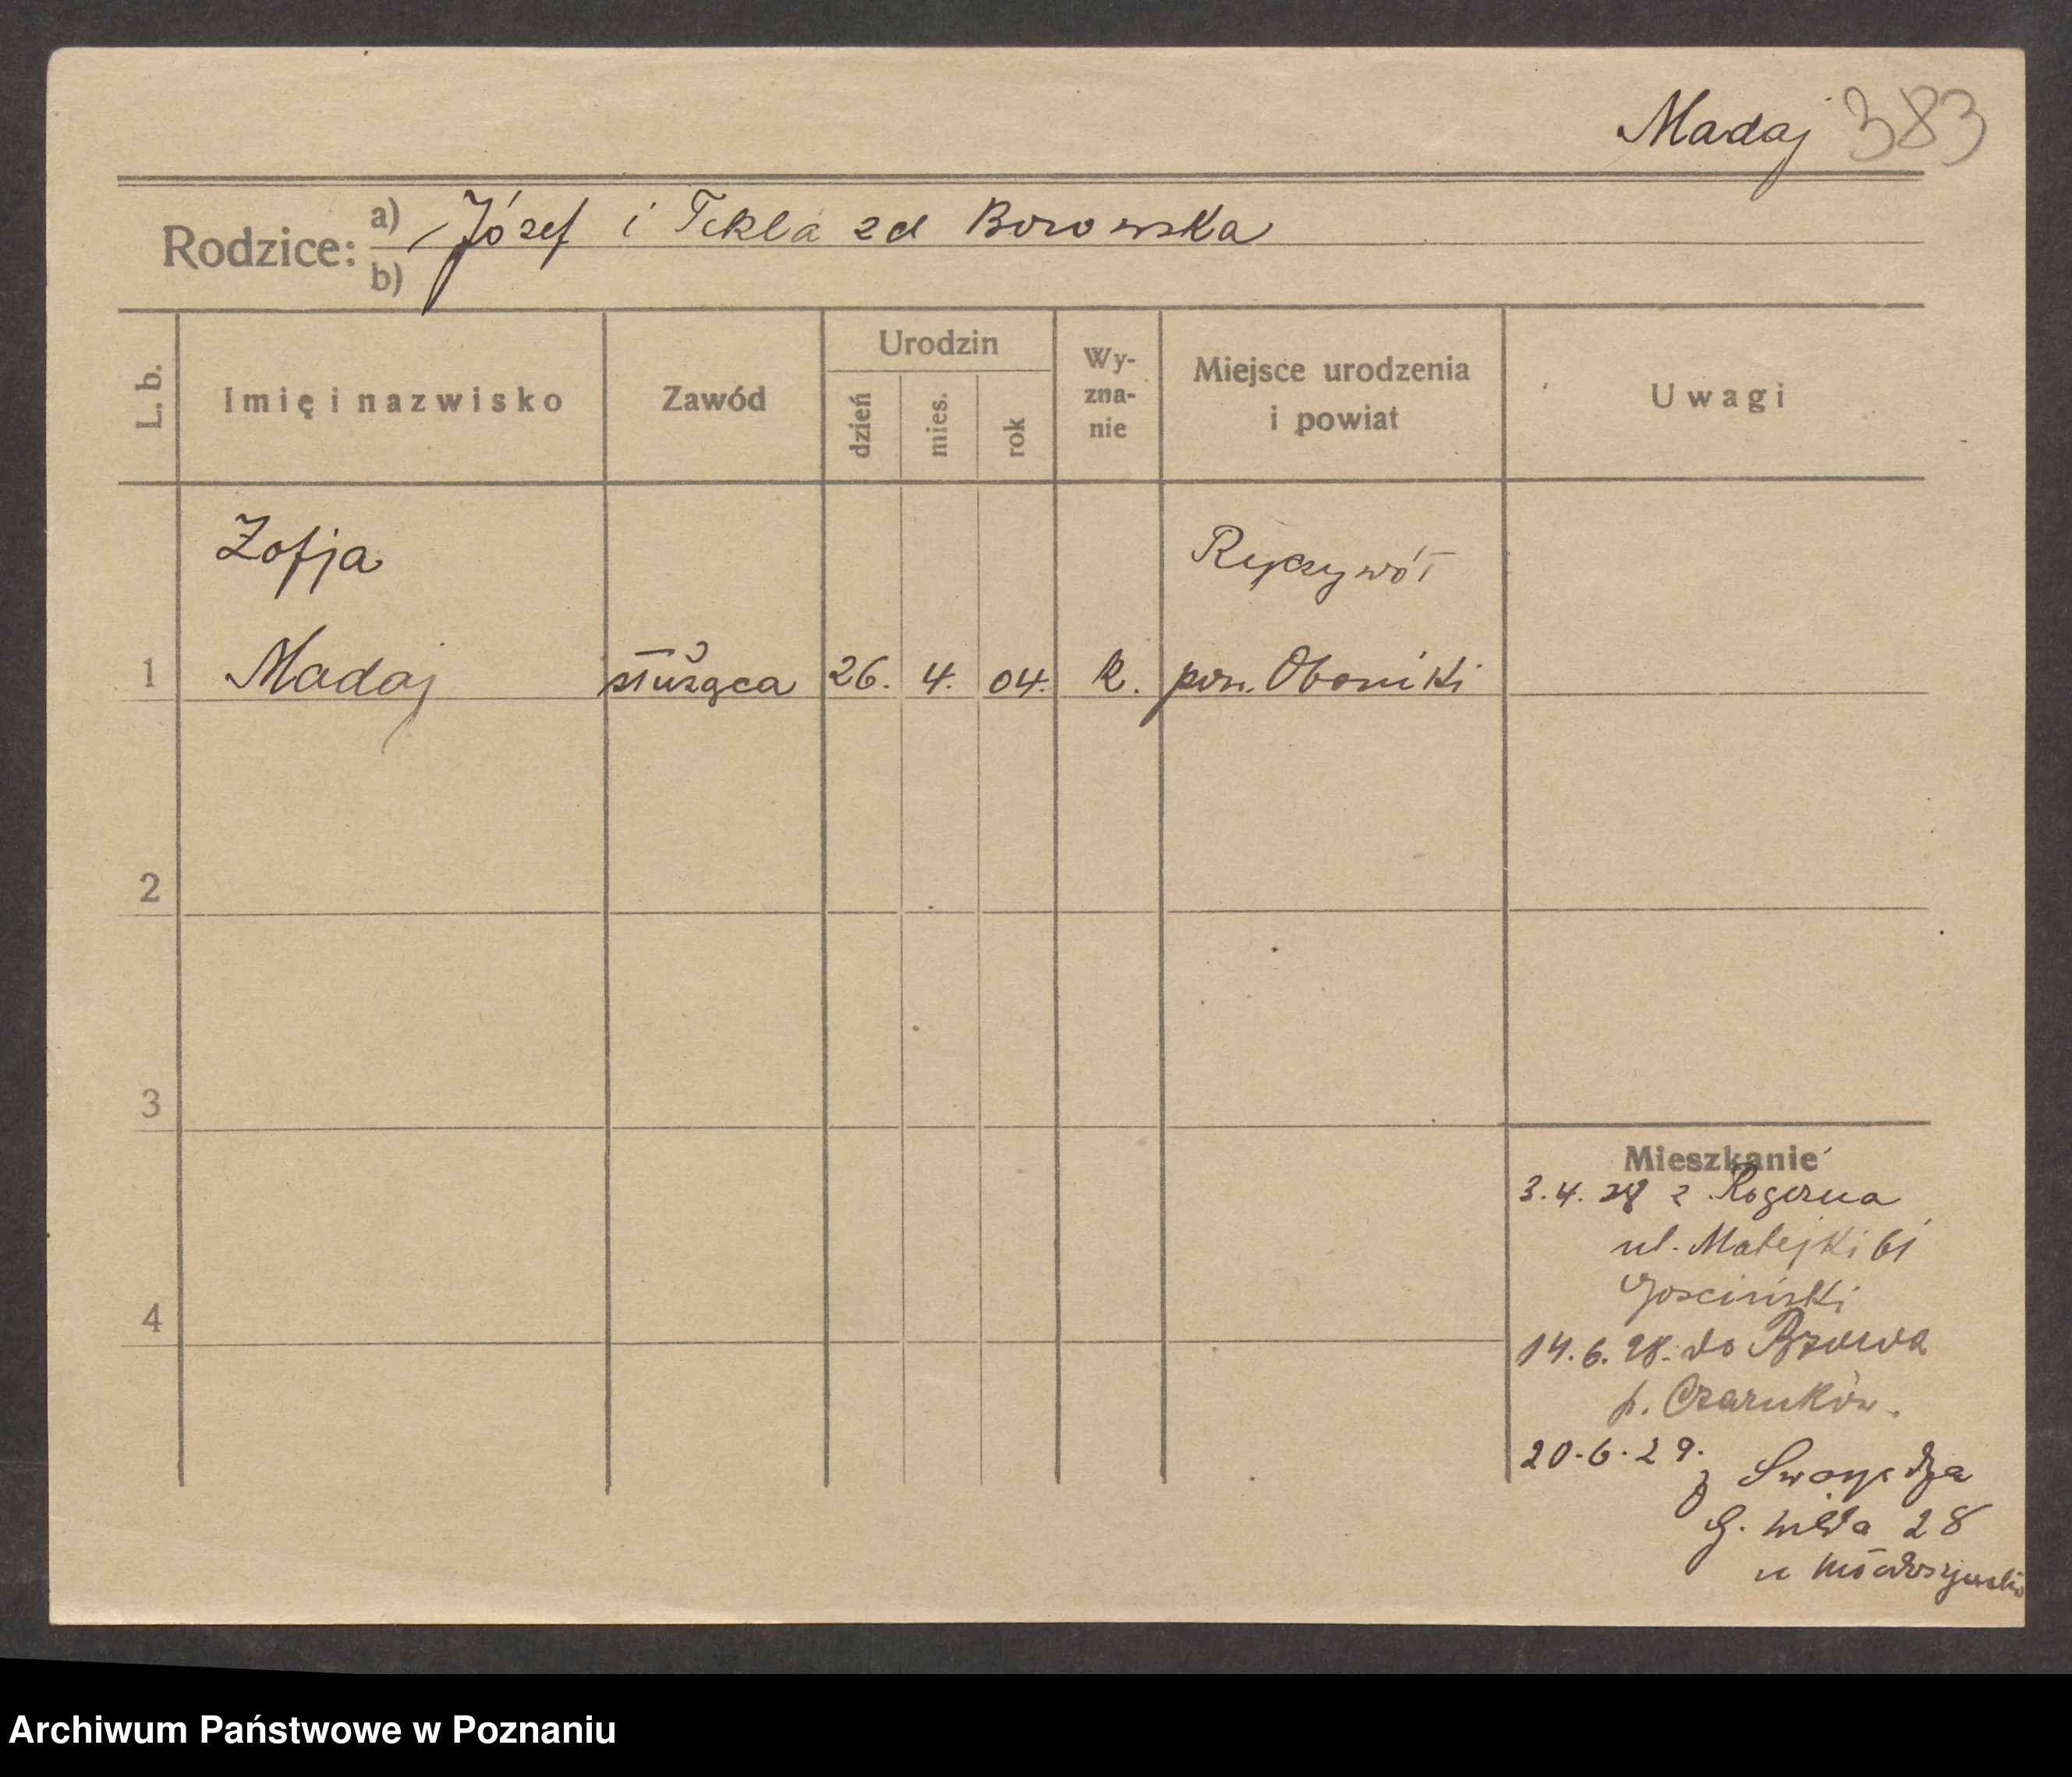 Madaj 383
Rodzice: a) Józef i Tekla zd Borowska
b)
L. b.
Imię i nazwisko
Zawód
Urodzin
dzień
mies.
rok
Wy-
zna-
nie
Miejsce urodzenia
i powiat
Uwagi
Zofja
1 Madaj służąca 26. 4. 04. k. pow. Oborniki
2
3
4
Mieszkanie
3.4. 28 z Rogoźna
ul. Matejki 61
Gościński
14.6.28. do
p. Czarnków.
20.6.29.
z Swarzędza
G. Wilda 28
u
Archiwum Państwowe w Poznaniu